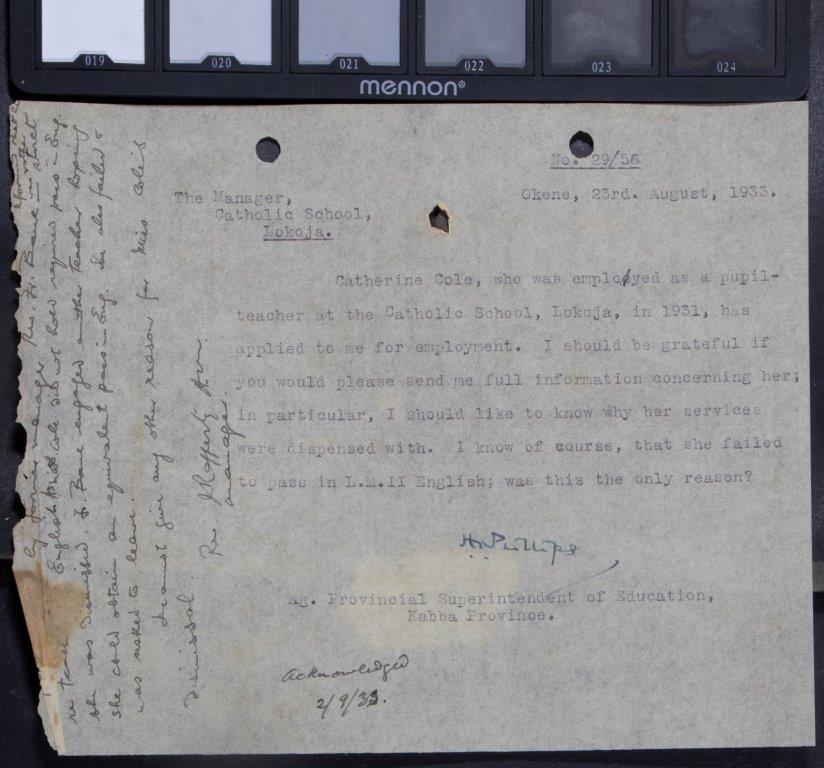 019 020 021 022 023 024
mennon®
No. 29/56
The Manager,
Okene, 23rd. August, 1933.
Catholic School,
Lokoja.
Catherine Cole, who was employed as a pupil-
teacher at the Catholic School, Lokoja, in 1931, has
applied to me for employment. I should be grateful if
you would please send me full information concerning her;
in particular, I should like to know why her services
were dispensed with. I know of course, that she failed
to pass in L.M.II English; was this the only reason?
H. Phillips
Ag. Provincial Superintendent of Education,
Kabba Province.
Acknowledged
2/9/33.
by former manager Rev. Fr. Bane
English Miss Cole did not hold required pass in Eng.
she was dismissed. Fr. Bane engaged another teacher hoping
she could obtain an equivalent pass in Eng. she also failed &
was asked to leave.
I cannot give any other reason for Miss Cole's
dismissal.
Rev. J Rafferty
manager.